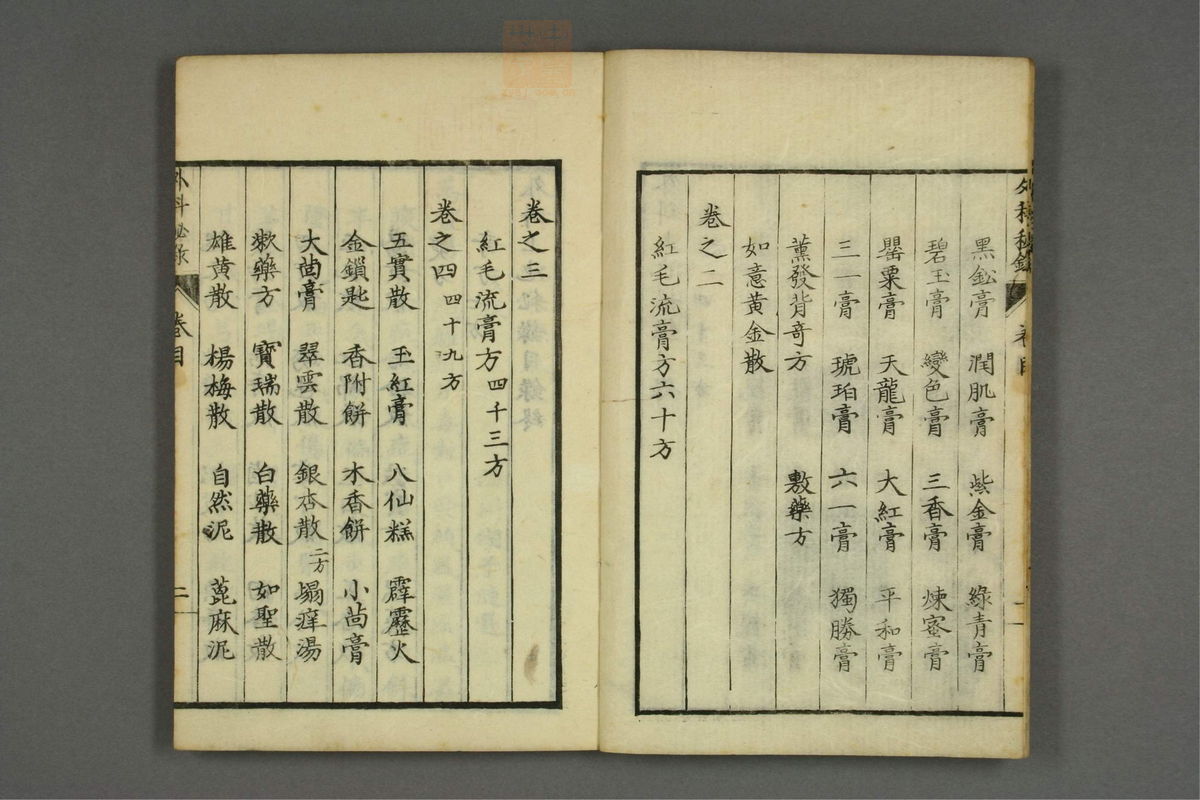 外科秘錄 卷目 二
黑鈆膏 潤肌膏 紫金膏 綠青膏
碧玉膏 變色膏 三香膏 煉蜜膏
罌粟膏 天龍膏 大紅膏 平和膏
三一膏 琥珀膏 六一膏 獨勝膏
薫發背奇方 敷藥方
如意黄金散
卷之二
紅毛流膏方六十方
卷之三
紅毛流膏方四千三方
卷之四 四十九方
五實散 玉紅膏 八仙糕 霹靂火
金鎖匙 香附餅 木香餅 小茴膏
大茴膏 翠雲散 銀杏散二方 塌痒湯
漱藥方 寶瑞散 白藥散 如聖散
雄黄散 楊梅散 自然泥 蓖麻泥
外科秘录 卷目 二